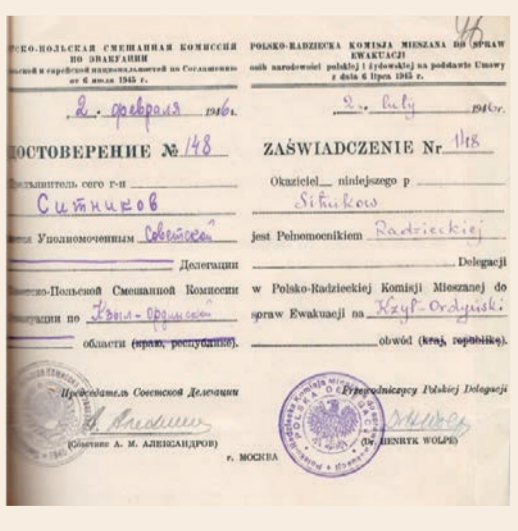 46
СКО-ПОЛЬСКАЯ СМЕШАННАЯ КОМИССИЯ
ПО ЭВАКУАЦИИ
и еврейской национальностей по Соглашению
от 6 июля 1945 г.
2. февраля 1946 г.
ДОСТОВЕРЕНИЕ № 148
сего г-н
Ситников
Уполномоченным Советской
Делегации
-Польской Смешанной Комиссии
по Кзыл-Ординской
области (краю, республике).
Председатель Советской Делегации
(Советник А. М. АЛЕКСАНДРОВ)
POLSKO-RADZIECKA KOMISJA MIESZANA DO SPRAW
EWAKUACJI
osób narodowości polskiej i żydowskiej na podstawie Umowy
z dnia 6 lipca 1945 r.
2. luty 1946 r.
ZAŚWIADCZENIE Nr 148
Okaziciel niniejszego p
Sitnikow
jest Pełnomocnikiem Radzieckiej
Delegacji
w Polsko-Radzieckiej Komisji Mieszanej do
spraw Ewakuacji na Kzył-Ordyński
obwód (kraj, republikę).
Przewodniczący Polskiej Delegacji
POLSKA DELEGACJA
(Dr. HENRYK WOLPE)
г. МОСКВА